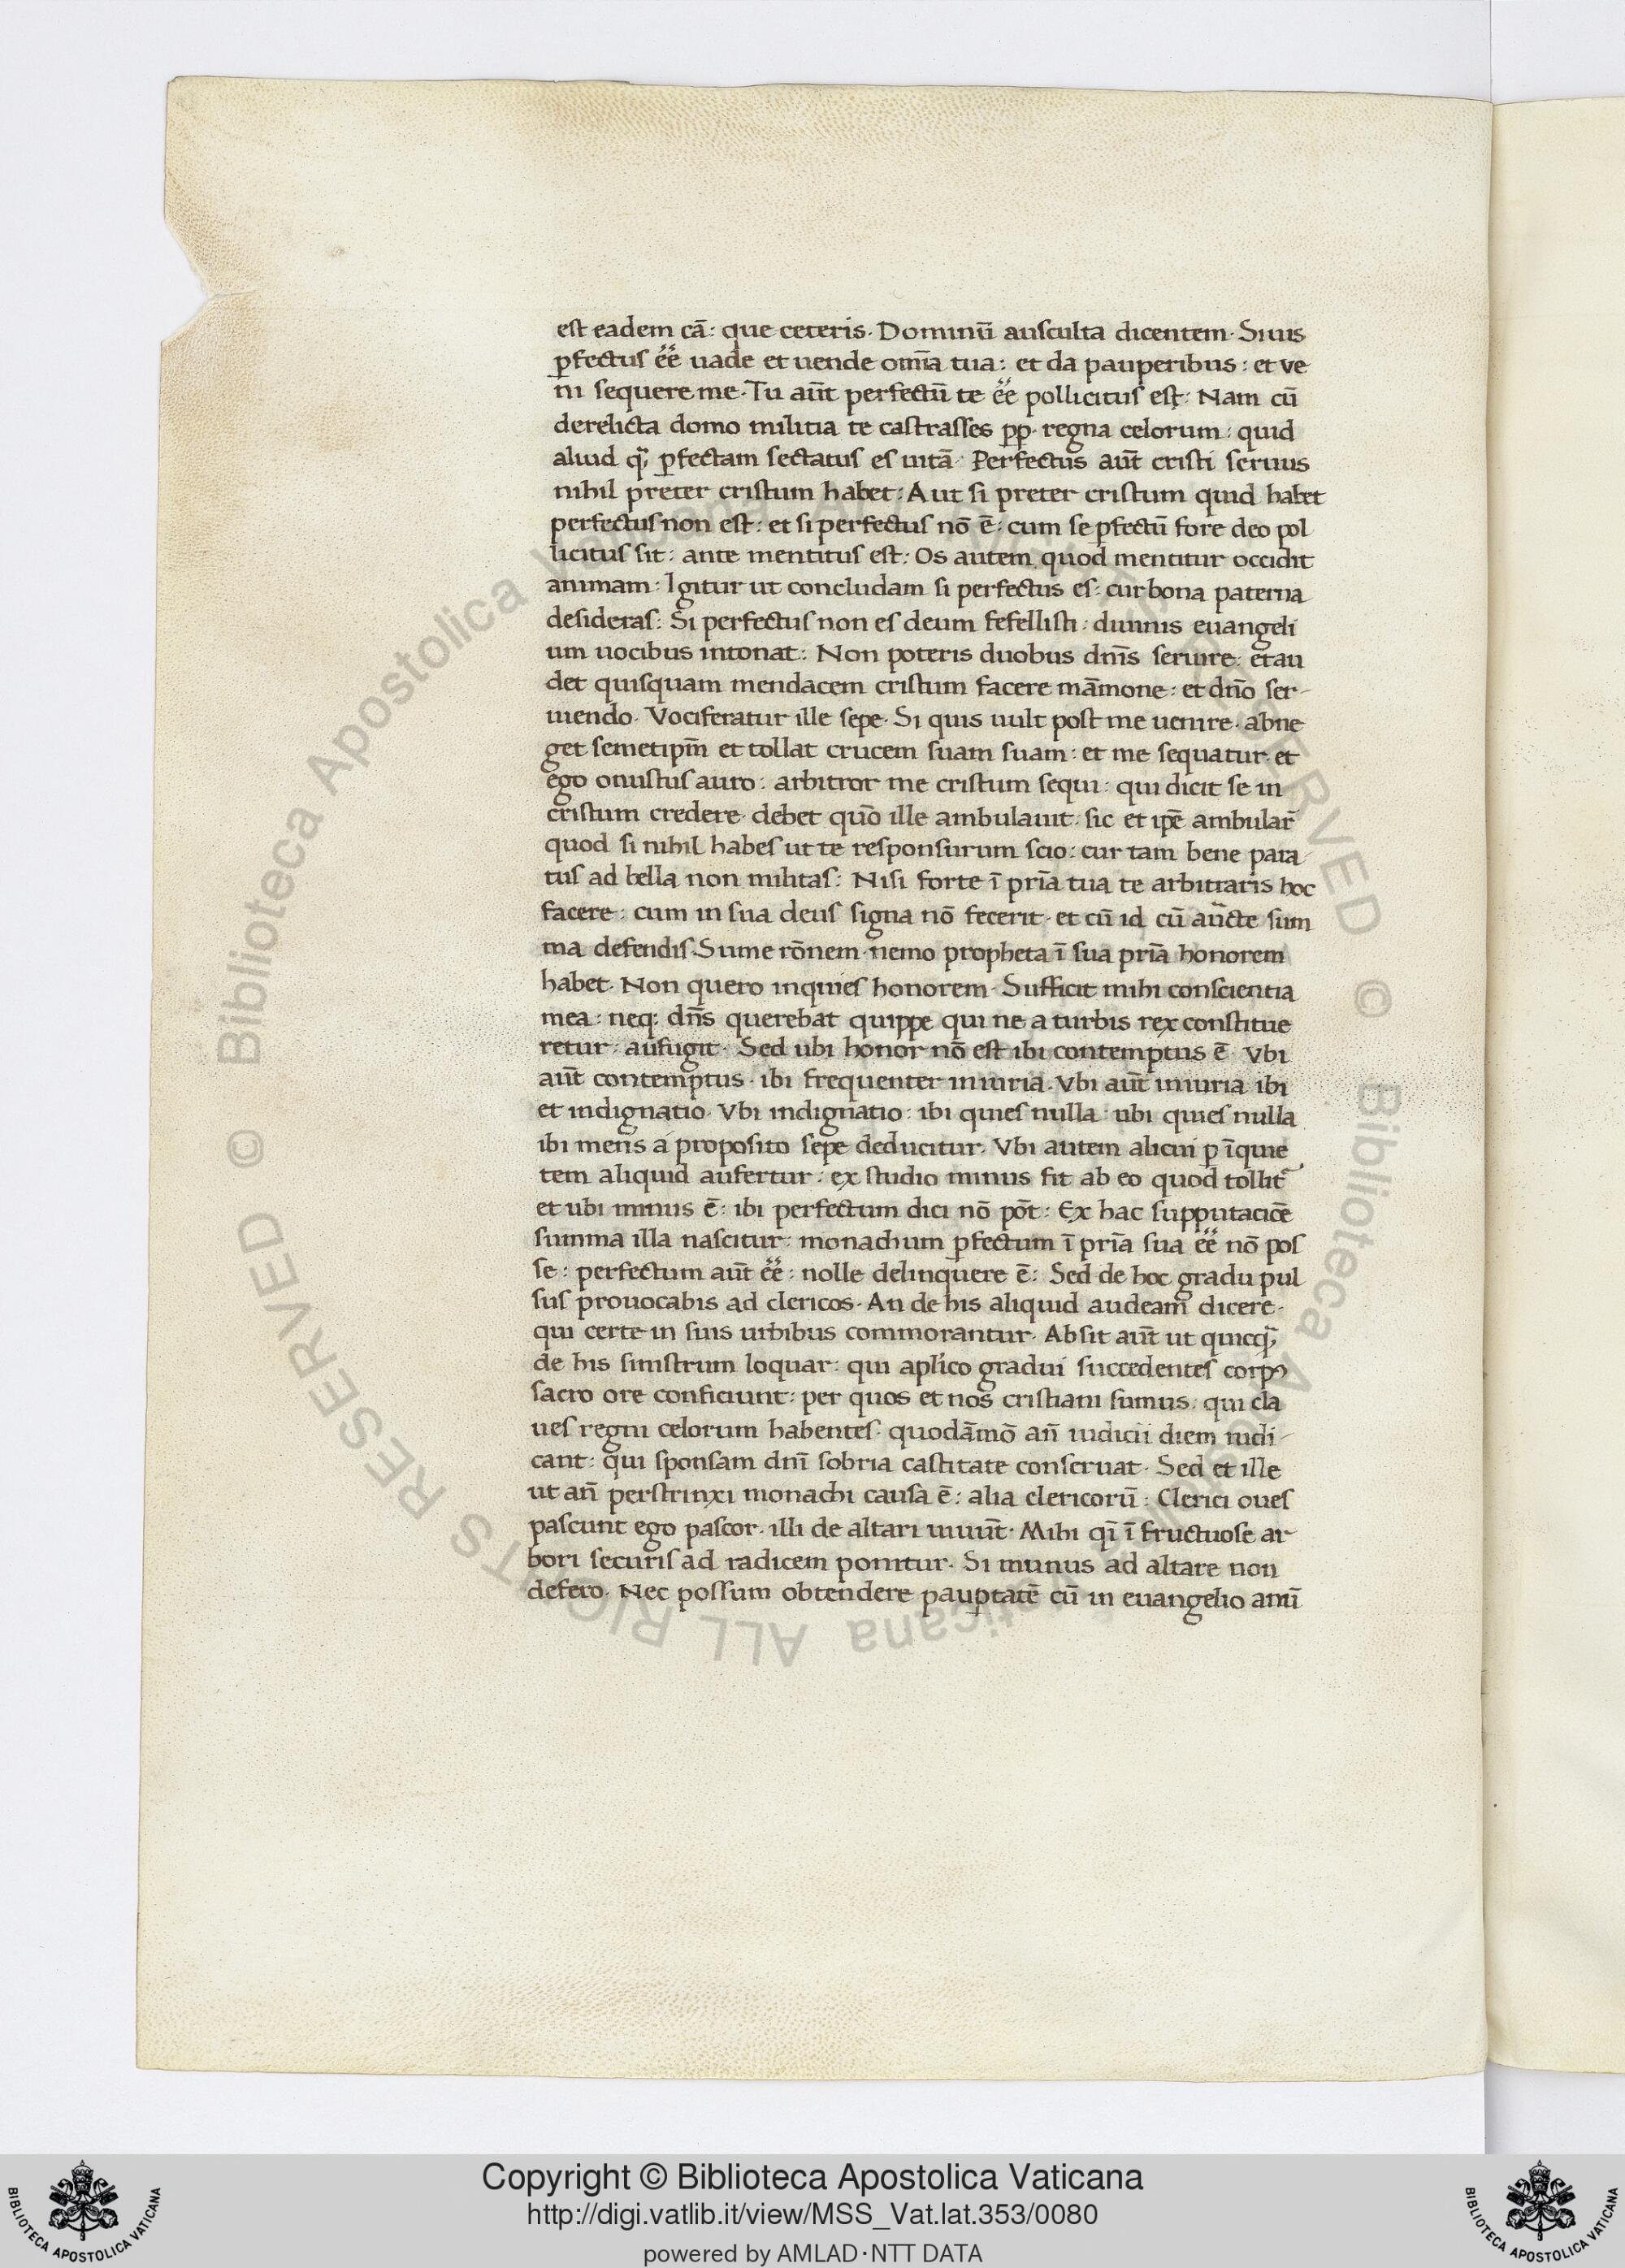 est eadem cā: que ceteris. Dominū ausculta dicentem. Si uis
ꝑfectus eē uade et uende omīa tua: et da pauperibus: et ve
ni sequere me. Tu aūt perfectū te eē pollicitus est: Nam cū
derelicta domo militia te castrasses pp. regna celorum: quid
aliud ꝙ ꝑfectam sectatus es uitā. Perfectus aūt cristi seruus
nihil preter cristum habet: Aut si preter cristum quid habet
perfectus non est: et si perfectus nō ē: cum se ꝑfectū fore deo pol
licitus sit: ante mentitus est: Os autem quod mentitur occidit
animam: Igitur ut concludam si perfectus es: cur bona paterna
desideras: Si perfectus non es deum fefellisti: diuinis euangeli
um uocibus intonat: Non poteris duobus dnīs seruire: et au
det quisquam mendacem cristum facere māmone: et dnō ser-
uiendo. Vociferatur ille sepe. Si quis uult post me uenire. abne
get semetipm̄ et tollat crucem suam suam: et me sequatur. et
ego onustus auro: arbitror me cristum sequi: qui dicit se in
cristum credere. debet quō ille ambulauit. sic et ipē ambular̄
quod si nihil habes ut te responsurum scio: cur tam bene para
tus ad bella non militas: Nisi forte ī prīa tua te arbitraris hoc
facere: cum in sua deus signa nō fecerit. et cū id cū aūcte sum
ma defendis. Sume rōnem. nemo propheta ī sua prīa honorem
habet. Non quero inquies honorem. Sufficit mihi conscientia
mea: neq: dn̄s querebat quippe qui ne a turbis rex constitue
retur: aufugit. Sed ubi honor nō est ibi contemptus ē. Vbi
aūt contemptus. ibi frequenter iniuria. Vbi aūt iniuria ibi
et indignatio. Vbi indignatio: ibi quies nulla: ubi quies nulla
ibi mens a proposito sepe deducitur. Vbi autem alicui ꝑ īquie
tem aliquid aufertur: ex studio minus fit ab eo quod tollit᷑
et ubi minus ē: ibi perfectum dici nō pōt: Ex hac supputacioē
summa illa nascitur: monachum ꝑfectum ī prīa sua eē nō pos
se: perfectum aūt eē: nolle delinquere ē: Sed de hoc gradu pul
sus prouocabis ad clericos. An de his aliquid audeam dicere.
qui certe in suis urbibus commorantur. Absit aūt ut quicꝙ
de his sinistrum loquar: qui aplico gradui succedentes corpꝰ
sacro ore conficiunt: per quos et nos cristiani sumus: qui cla
ues regni celorum habentes. quodāmō an̄ iudicii diem iudi-
cant: qui sponsam dnī sobria castitate conseruat. Sed et ille
ut an̄ perstrinxi monachi causa ē: alia clericorū: Clerici oues
pascunt ego pascor. illi de altari uiuūt. Mihi qī ī fructuose ar
bori securis ad radicem ponitur. Si munus ad altare non
defero. Nec possum obtendere pauꝑtatē cū in euangelio anū
Copyright © Biblioteca Apostolica Vaticana
http://digi.vatlib.it/view/MSS_Vat.lat.353/0080
powered by AMLAD·NTT DATA
BIBLIOTECA APOSTOLICA VATICANA
BIBLIOTECA APOSTOLICA VATICANA
© Biblioteca Apostolica Vaticana ALL RIGHTS RESERVED © Biblioteca Apostolica Vaticana ALL RIGHTS RESERVED